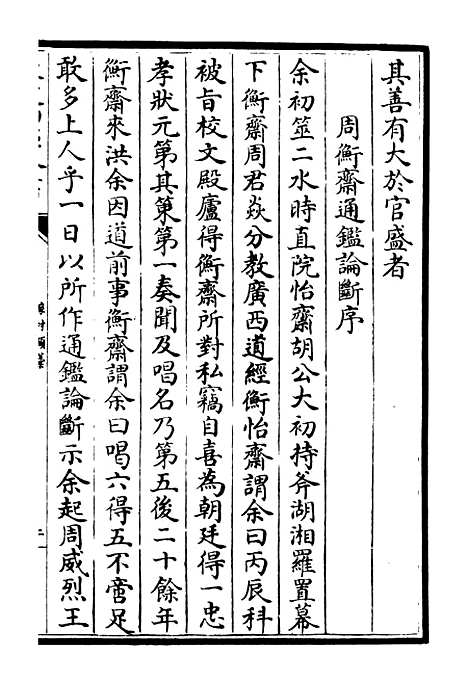 其善有大於官盛者
周衡齋通鑑論斷序
余初筮二水時直院怡齋胡公大初持斧湖湘羅置幕
下衡齋周君焱分教廣西道經衡怡齋謂余曰丙辰科
被旨校文殿廬得衡齋所對私竊自喜為朝廷得一忠
孝狀元第其策第一奏聞及唱名乃第五後二十餘年
衡齋來洪余因道前事衡齋謂余曰唱六得五不啻足
敢多上人乎一日以所作通鑑論斷示余起周威烈王